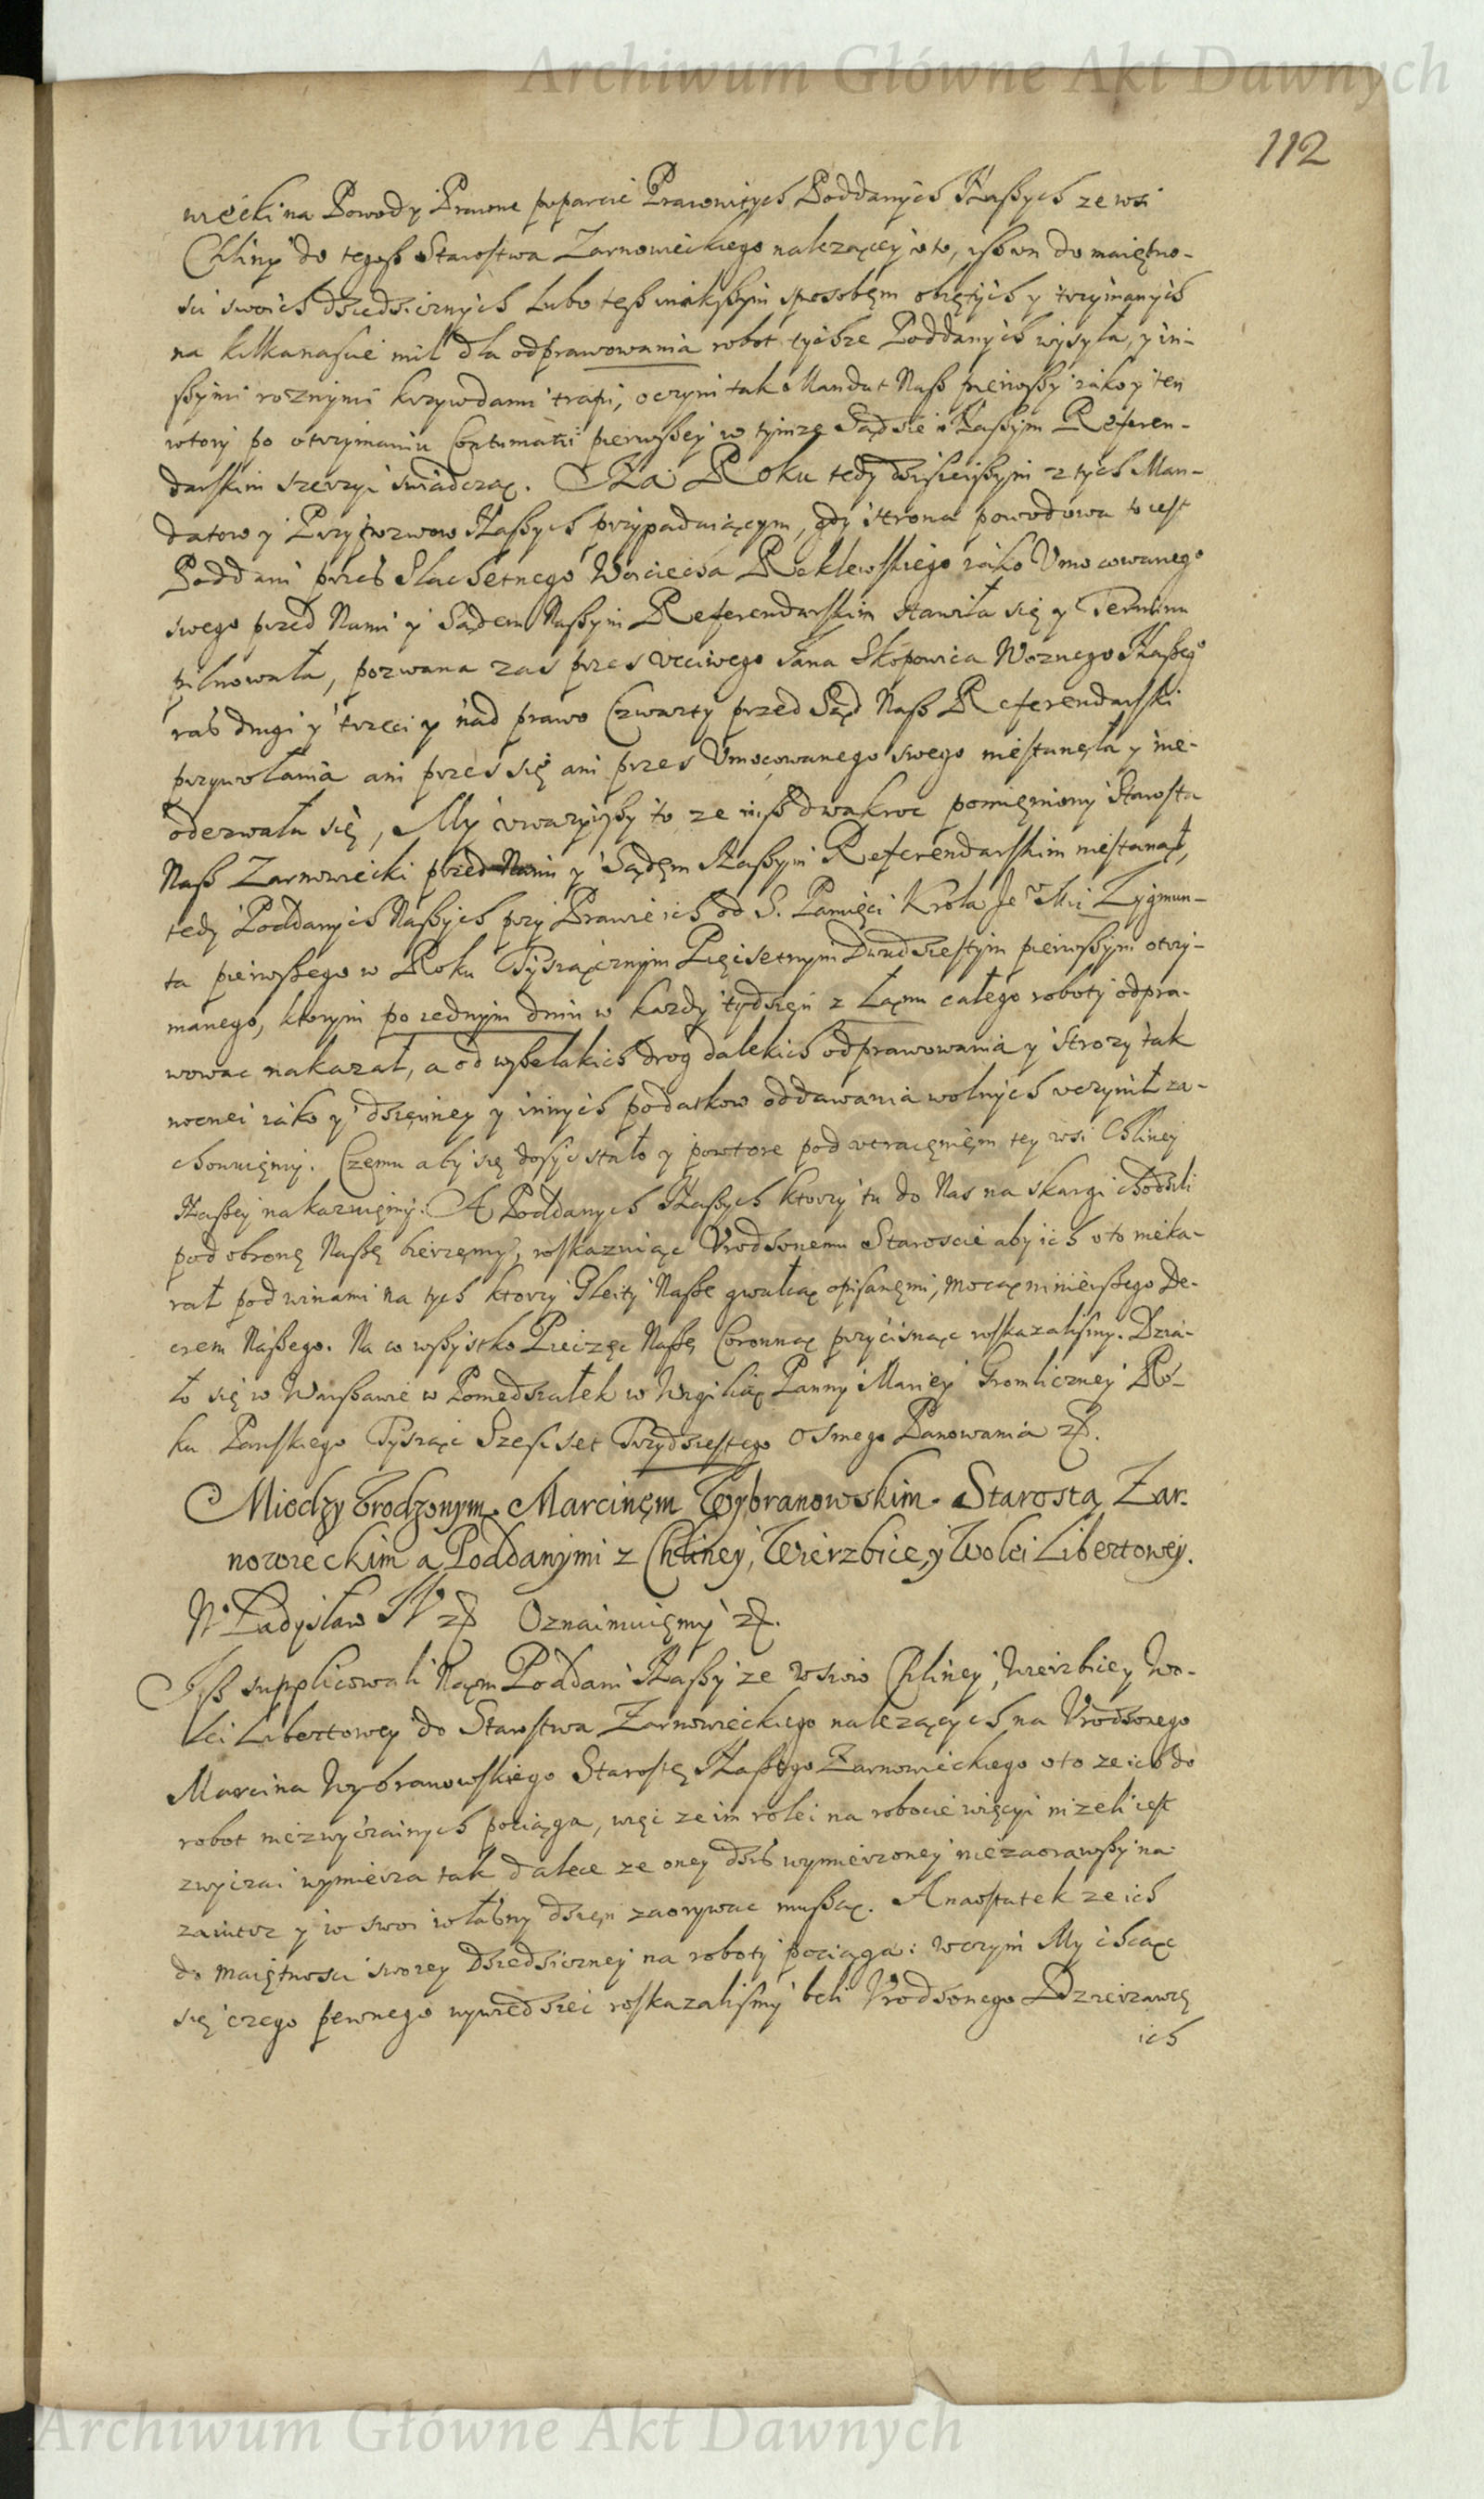 Archiwum Główne Akt Dawnych
112
wiecki na Powody Prawne poparcie Pracowitych Poddanych Naßych ze wsi
Chliny do tegoß Starostwa Zarnowieckiego nalezącey o to, ißwn do maiętno-
sci swoich dziedzicznych lubo teß inakßym sposobęm obiętych y trzymanych
na kilkanascie mil dla odprawowania robot tychze Poddanych wysyła, y in-
ßymi roznymi krzywdami trapi, o czym tak Mandat Naß pierwßy iako y ten
wtory po otrzymaniu Contumatii pierwßey w tymze Sądzie Naßym Referen-
darskim szerzyi swiadczą. Na Roku tedy dzisieyßym z tych Man-
datow y Przypozwow Naßych przypadaiącym, gdy strona powodowa to iest
Poddani przes Slachetnego Woyciecha Reklewskiego iako Umocowanego
swego przed Nami y Sądem Naßym Referendarskim stawiła się y Terminu
pilnowała, pozwana zas przes Ucciwego Jana Skopowica Woznego Naßego
ras drugi y trzeci y nad prawo Czwarty przed Sąd Naß Referendarski
przywołania ani przes się ani przes Umocowanego swego niestanęła y nie-
odezwała się, My uwazyißy to ze iuß dwakroc pomięniony Starosta
Naß Zarnowiecki przed Nami y Sądęm Naßym Referendarskim niestanął,
tedy Poddanych Naßych przy Prawie ich od S. Pamięci Krola Je Mci Zygmun-
ta pierwßego w Roku Tysiącznym Pięcsetnym Dwudziestym pierwßym otrzy-
manego, ktorym po iednym dniu w kazdy tydzięn z Łanu całego roboty odpra-
wowac nakazał, a od wßelakich drog dalekich odprawowania y Strozy tak
nocnei iako y dzięnney y innych podatkow oddawania wolnych uczynił za-
chowuięmy. Czemu aby się dosyc stało y powtore pod utracęnięm tey wsi Chliney
Naßey nakazuięmy. A Poddanych Naßych ktorzy tu do Nas na skargi chodzili
pod obronę Naßę bierzęmy, roskazuiąc Urodzonemu Staroscie aby ich o to nieka-
rał pod winami na tych ktorzy Gleity Naße gwałcą opisanęmi, mocą ninieyßego De-
cretu Naßego. Na co wßystko Pieczęc Naßę Coronną przycisnąc roskazalismy. Dzia-
ło się w Warßawie w Poniedziałek w Wigilią Panny Mariey Gromliczney Ro-
ku Panskiego Tysiąc Szescset Trzydziestego Osmego Panowania etc.
Miedzy Urodzonym Marcinęm Wybranowskim Starostą Zar-
nowieckim a Poddanymi z Chliney, Wierzbice, y Wolei Libertowey.
Władysław IV etc Oznaimuięmy etc.
Iß supplicowali Nąm Poddani Naßy ze wsiow Chliney, Wierzbiey Wo-
lei Libertowey do Starostwa Zarnowieckiego nalezących na Urodzonego
Marcina Wybranowskiego Starostę Naßego Zarnowieckiego o to ze ich do
robot niezwyczainych pociąga, więc ze im rolei na robocie więcyi nizeli iest
zwyczai wymierza tak dalece ze oney dzis wymierzoney niezaorawßy na
zaiutrz y w swoi własny dzięn zaorywac mußą. A naostatek ze ich
do maiętnosci swoiey Dziedziczney na roboty pociąga: w czym My chcąc
się czego pewnego wywiedziec roskazalismy beli Urodzonego Dzierzawcę
ich
Archiwum Główne Akt Dawnych